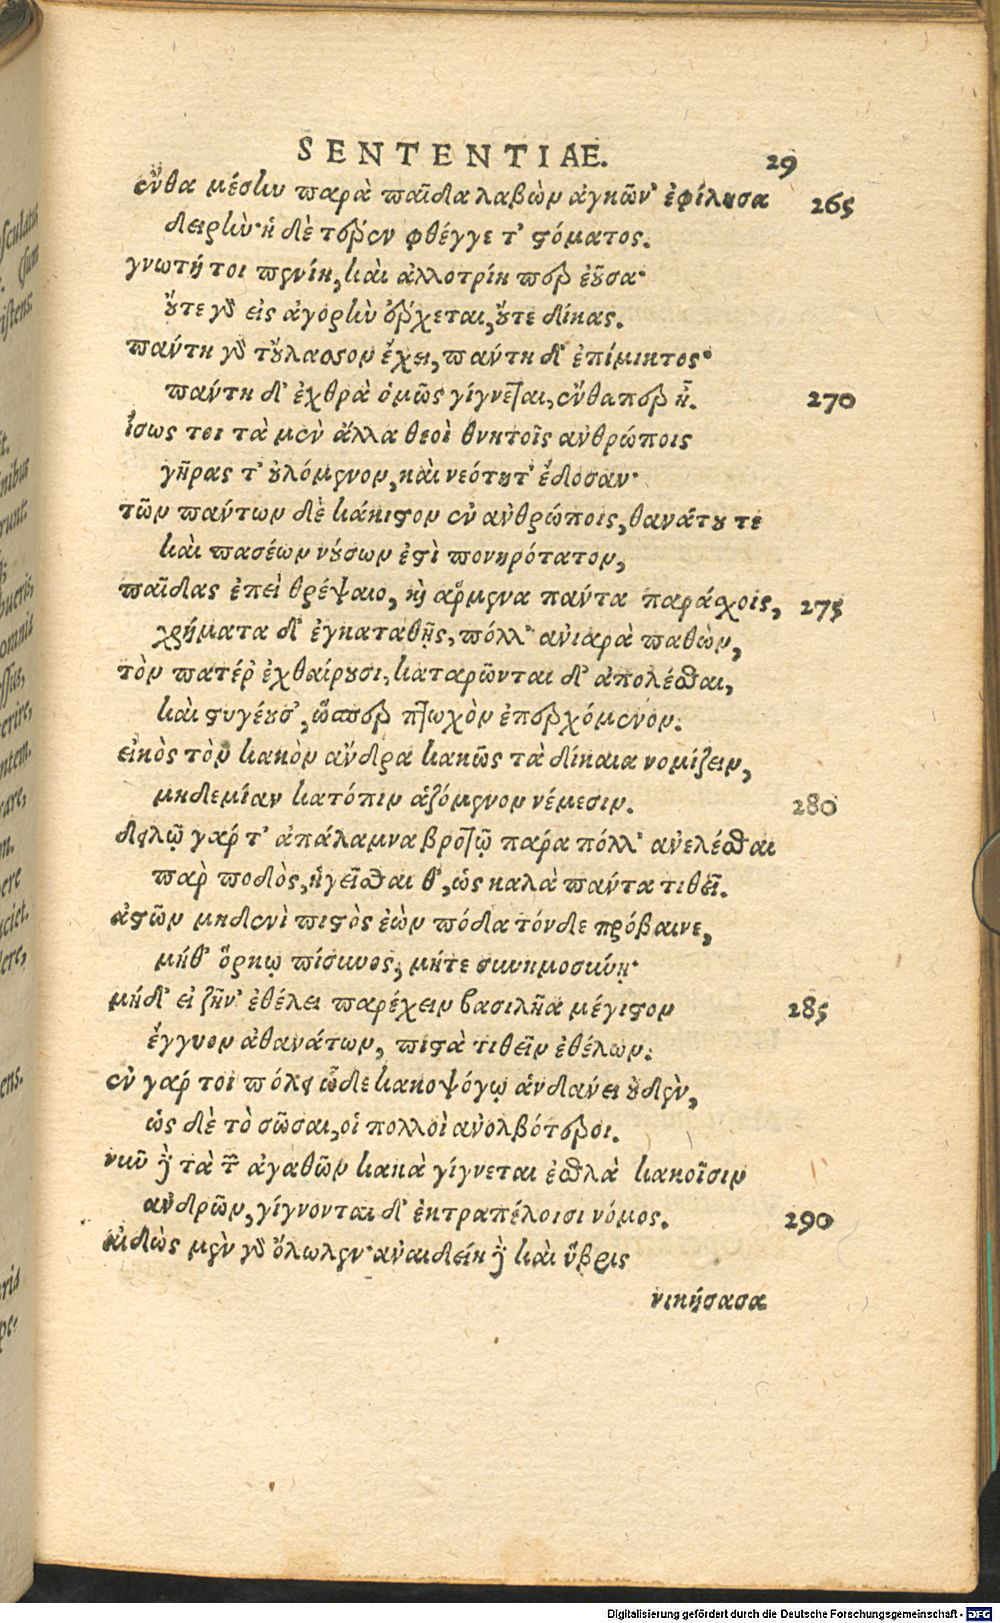 SENTENTIAE. 29
ἔνθα μέσην παρὰ παῖδα λαβὼν ἀγκῶν' ἐφίλησα 265
δειρὴν· ἡ δὲ τέρεν φθέγγε τ' στόματος.
γνωτή τοι πενίη, καὶ ἀλλοτρίη περ ἐοῦσα·
οὔτε γὰρ εἰς ἀγορὴν ἔρχεται, οὔτε δίκας.
πάντη γὰρ τοὔλασσον ἔχει, πάντη δ' ἐπίμικτος·
πάντη δ' ἐχθρὰ ὁμῶς γίγνεται, ἔνθαπερ ᾖ. 270
ἴσως τοι τὰ μὲν ἄλλα θεοὶ θνητοῖς ἀνθρώποις
γῆρας τ' οὐλόμενον, καὶ νεότητ' ἔδοσαν·
τῶν πάντων δὲ κάκιστον ἐν ἀνθρώποις, θανάτου τε
καὶ πασέων νούσων ἐστὶ πονηρότατον,
παῖδας ἐπεὶ θρέψαιο, καὶ ἄρμενα πάντα παράσχοις, 275
χρήματα δ' ἐγκαταθῇς, πόλλ' ἀνιαρὰ παθὼν,
τὸν πατέρ' ἐχθαίρουσι, καταρῶνται δ' ἀπολέσθαι,
καὶ στυγέουσ', ὥσπερ πτωχὸν ἐπερχόμενον.
εἰκὸς τὸν κακὸν ἄνδρα κακῶς τὰ δίκαια νομίζειν,
μηδεμίαν κατόπιν ἁζόμενον νέμεσιν. 280
δειλῷ γάρ τ' ἀπάλαμνα βροτῷ πάρα πόλλ' ἀνελέσθαι
πὰρ ποδὸς, ἡγεῖσθαι θ', ὡς καλὰ πάντα τιθεῖ.
ἀστῶν μηδενὶ πιστὸς ἐὼν πόδα τόνδε πρόβαινε,
μήθ' ὅρκῳ πίσυνος, μήτε συνημοσύνῃ·
μήδ' εἰ ζῆν' ἐθέλει παρέχειν βασιλῆα μέγιστον 285
ἔγγυον ἀθανάτων, πιστὰ τιθεῖν ἐθέλων.
ἐν γάρ τοι πόλει ὧδε κακοψόγῳ ἁνδάνει οὐδὲν,
ὡς δὲ τὸ σῶσαι, οἱ πολλοὶ ἀνολβότεροι.
νῦν δὲ τὰ τῶν ἀγαθῶν κακὰ γίγνεται ἐσθλὰ κακοῖσιν
ἀνδρῶν, γίγνονται δ' ἐκτραπέλοισι νόμος. 290
αἰδὼς μὲν γὰρ ὄλωλεν· ἀναιδείη δὲ καὶ ὕβρις
νικήσασα
Digitalisierung gefördert durch die Deutsche Forschungsgemeinschaft - DFG